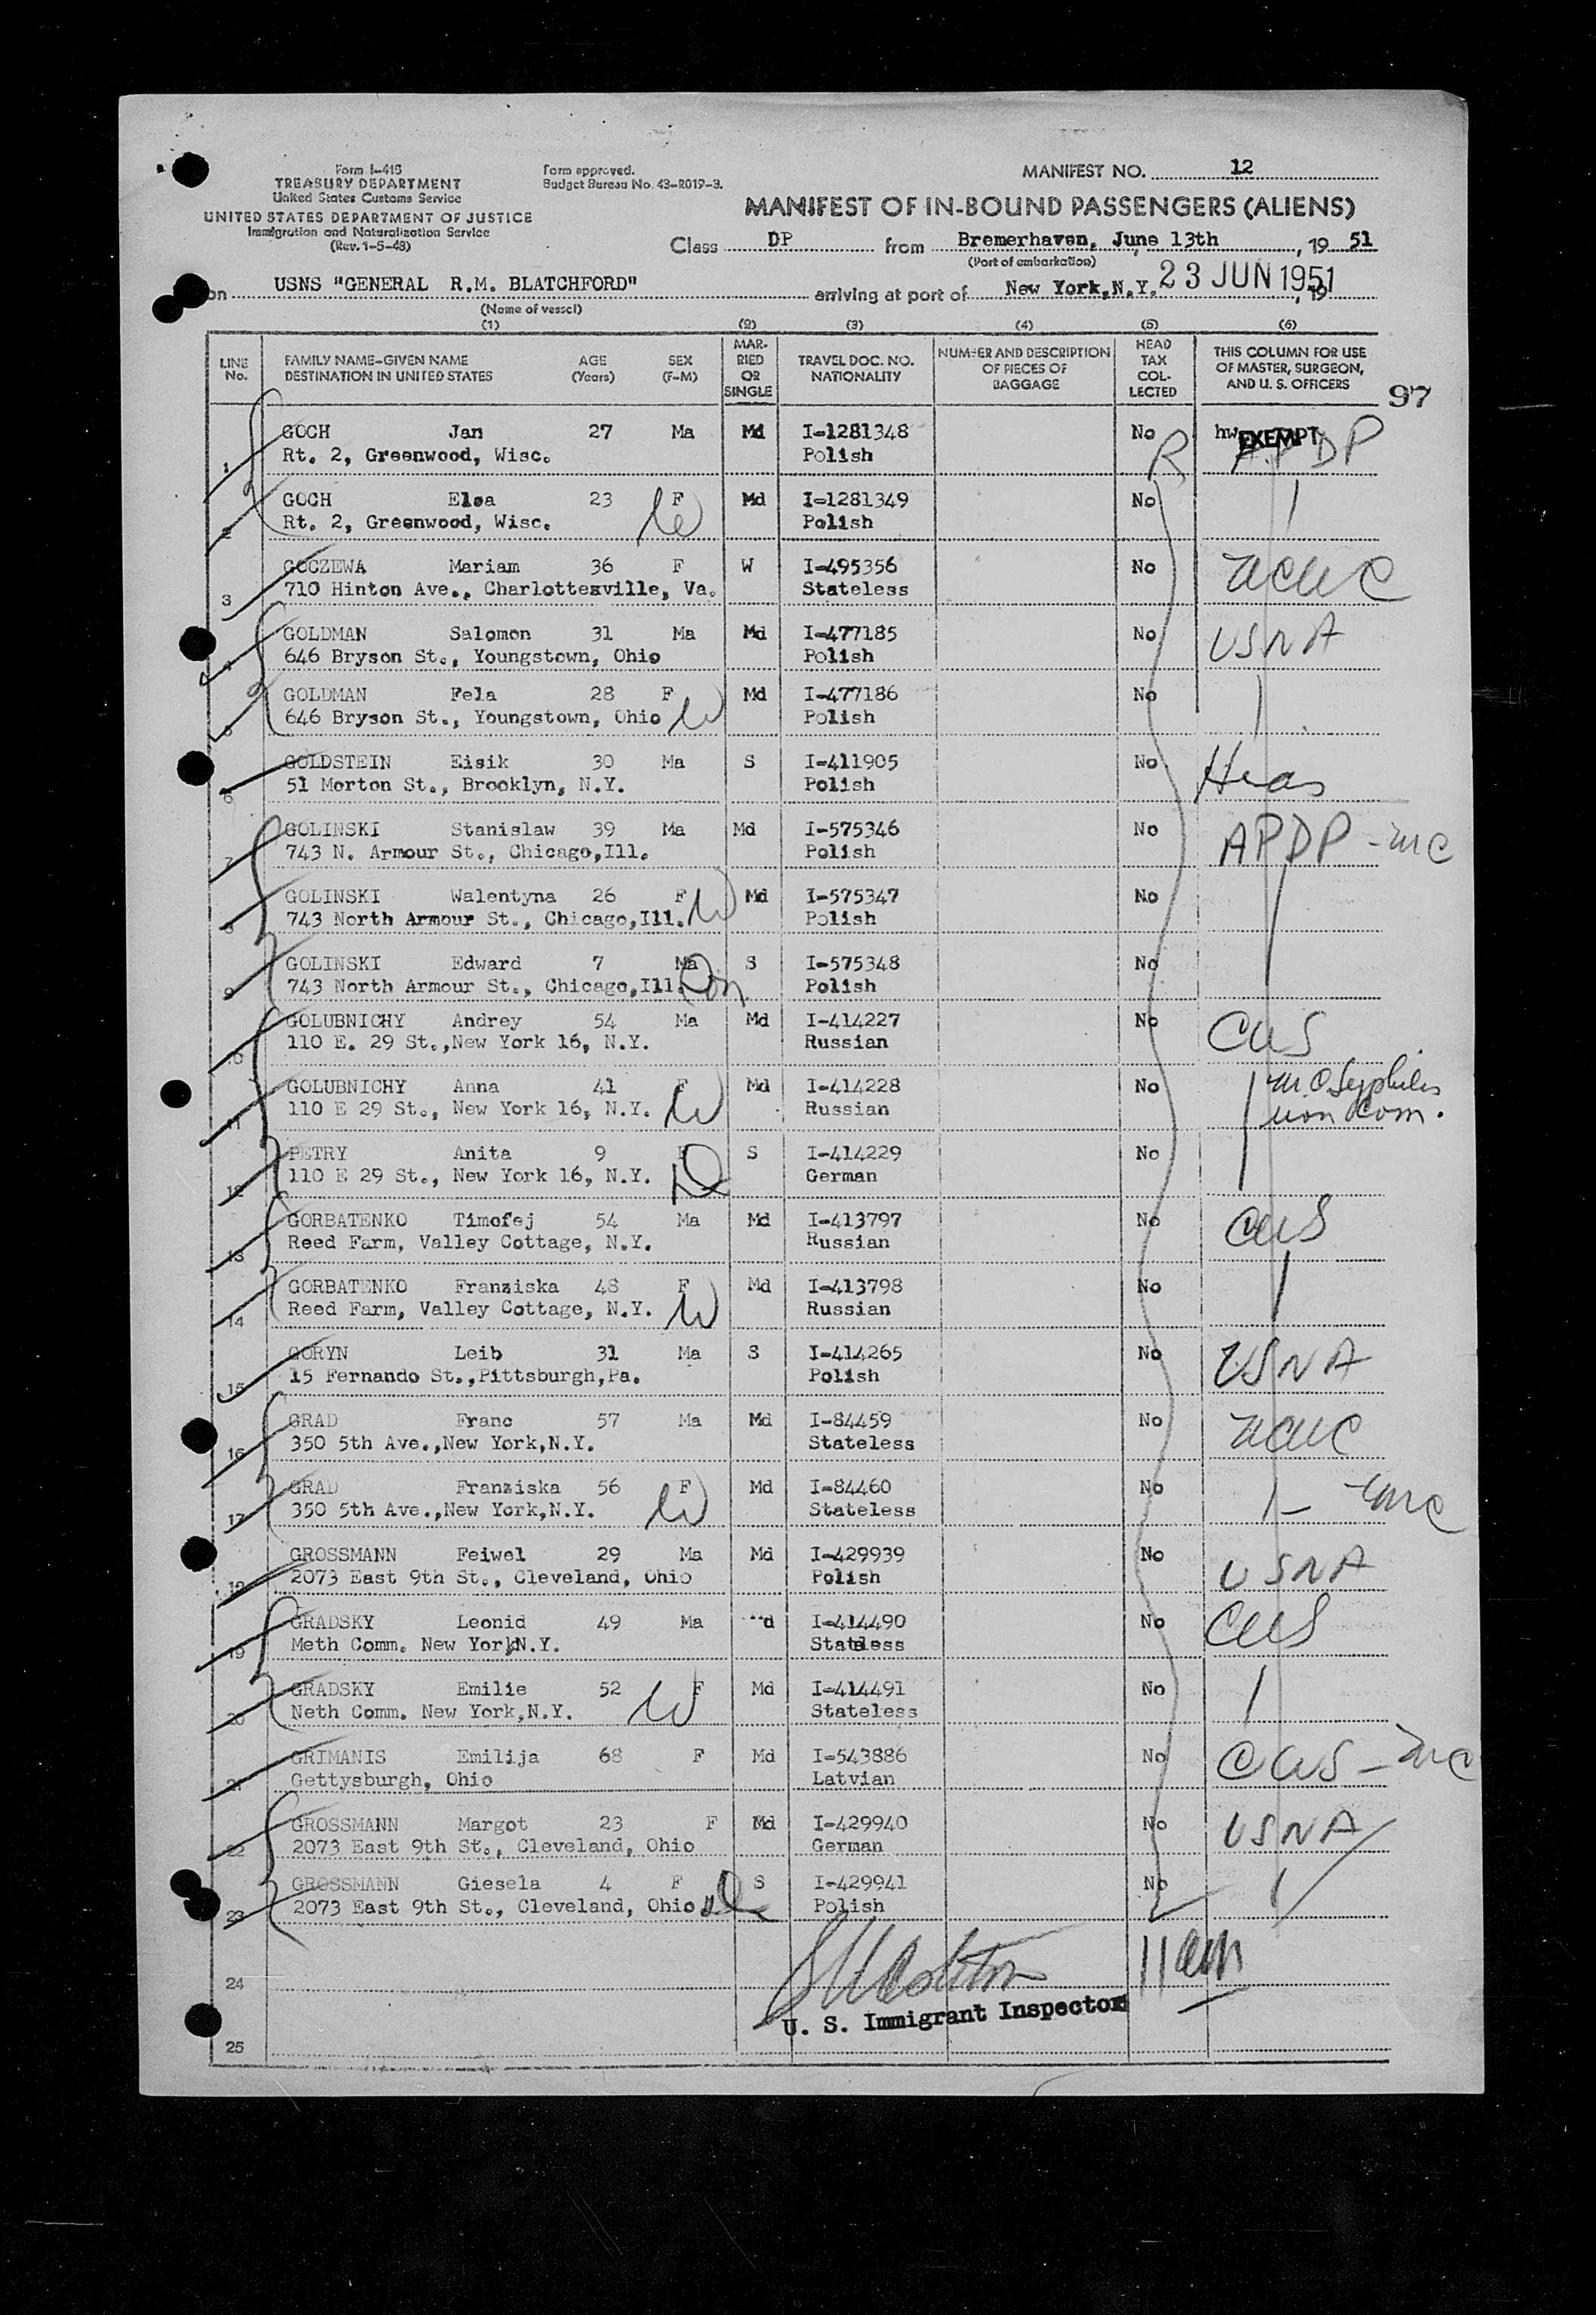 Form I-418
TREASURY DEPARTMENT
United States Customs Service
UNITED STATES DEPARTMENT OF JUSTICE
Immigration and Naturalization Service
(Rev. 1-5-48)
Form approved.
Budget Bureau No. 43-R019-3.
MANIFEST NO. 12
MANIFEST OF IN-BOUND PASSENGERS (ALIENS)
Class DP from Bremerhaven, June 13th, 19 51
(Port of embarkation)
on USNS "GENERAL R.M. BLATCHFORD" arriving at port of New York,N.Y. 23 JUN 1951, 19
(Name of vessel)
(1) (2) (3) (4) (5) (6)
LINE No. FAMILY NAME-GIVEN NAME DESTINATION IN UNITED STATES AGE (Years) SEX (F-M) MARRIED OR SINGLE TRAVEL DOC. NO. NATIONALITY NUMBER AND DESCRIPTION OF PIECES OF BAGGAGE HEAD TAX COLLECTED THIS COLUMN FOR USE OF MASTER, SURGEON, AND U. S. OFFICERS
97
1 GOCH Jan 27 Ma Md I-1281348 No R hw EXEMPT APDP
Rt. 2, Greenwood, Wisc. Polish
2 GOCH Elsa 23 F W Md I-1281349 No
Rt. 2, Greenwood, Wisc. Polish
3 GOCZEWA Mariam 36 F W I-495356 No NCWC
710 Hinton Ave., Charlottesville, Va. Stateless
4 GOLDMAN Salomon 31 Ma Md I-477185 No USNA
646 Bryson St., Youngstown, Ohio Polish
5 GOLDMAN Fela 28 F W Md I-477186 No
646 Bryson St., Youngstown, Ohio Polish
6 GOLDSTEIN Eisik 30 Ma S I-411905 No Hias
51 Morton St., Brooklyn, N.Y. Polish
7 GOLINSKI Stanislaw 39 Ma Md I-575346 No APDP - mc
743 N. Armour St., Chicago,Ill. Polish
8 GOLINSKI Walentyna 26 F W Md I-575347 No
743 North Armour St., Chicago,Ill. Polish
9 GOLINSKI Edward 7 Ma S I-575348 No
743 North Armour St., Chicago,Ill. Son Polish
10 GOLUBNICHY Andrey 54 Ma Md I-414227 No CWS
110 E. 29 St.,New York 16, N.Y. Russian
11 GOLUBNICHY Anna 41 F W Md I-414228 No M.C Syphilis
110 E 29 St., New York 16, N.Y. Russian non Com.
12 PETRY Anita 9 F D S I-414229 No
110 E 29 St., New York 16, N.Y. German
13 GORBATENKO Timofej 54 Ma Md I-413797 No CWS
Reed Farm, Valley Cottage, N.Y. Russian
14 GORBATENKO Franziska 48 F W Md I-413798 No
Reed Farm, Valley Cottage, N.Y. Russian
15 GORYN Leib 31 Ma S I-414265 No USNA
15 Fernando St.,Pittsburgh,Pa. Polish
16 GRAD Franc 57 Ma Md I-84459 No NCWC
350 5th Ave.,New York,N.Y. Stateless
17 GRAD Franziska 56 F W Md I-84460 No - mc
350 5th Ave.,New York,N.Y. Stateless
18 GROSSMANN Feiwel 29 Ma Md I-429939 No USNA
2073 East 9th St., Cleveland, Ohio Polish
19 GRADSKY Leonid 49 Ma Md I-414490 No CWS
Meth Comm. New York,N.Y. Stateless
20 GRADSKY Emilie 52 F W Md I-414491 No
Neth Comm. New York,N.Y. Stateless
21 GRIMANIS Emilija 68 F Md I-543886 No CWS - mc
Gettysburgh, Ohio Latvian
22 GROSSMANN Margot 23 F Md I-429940 No USNA
2073 East 9th St., Cleveland, Ohio German
23 GROSSMANN Giesela 4 F D S I-429941 No
2073 East 9th St., Cleveland, Ohio Polish
24 11 am
U. S. Immigrant Inspector
25